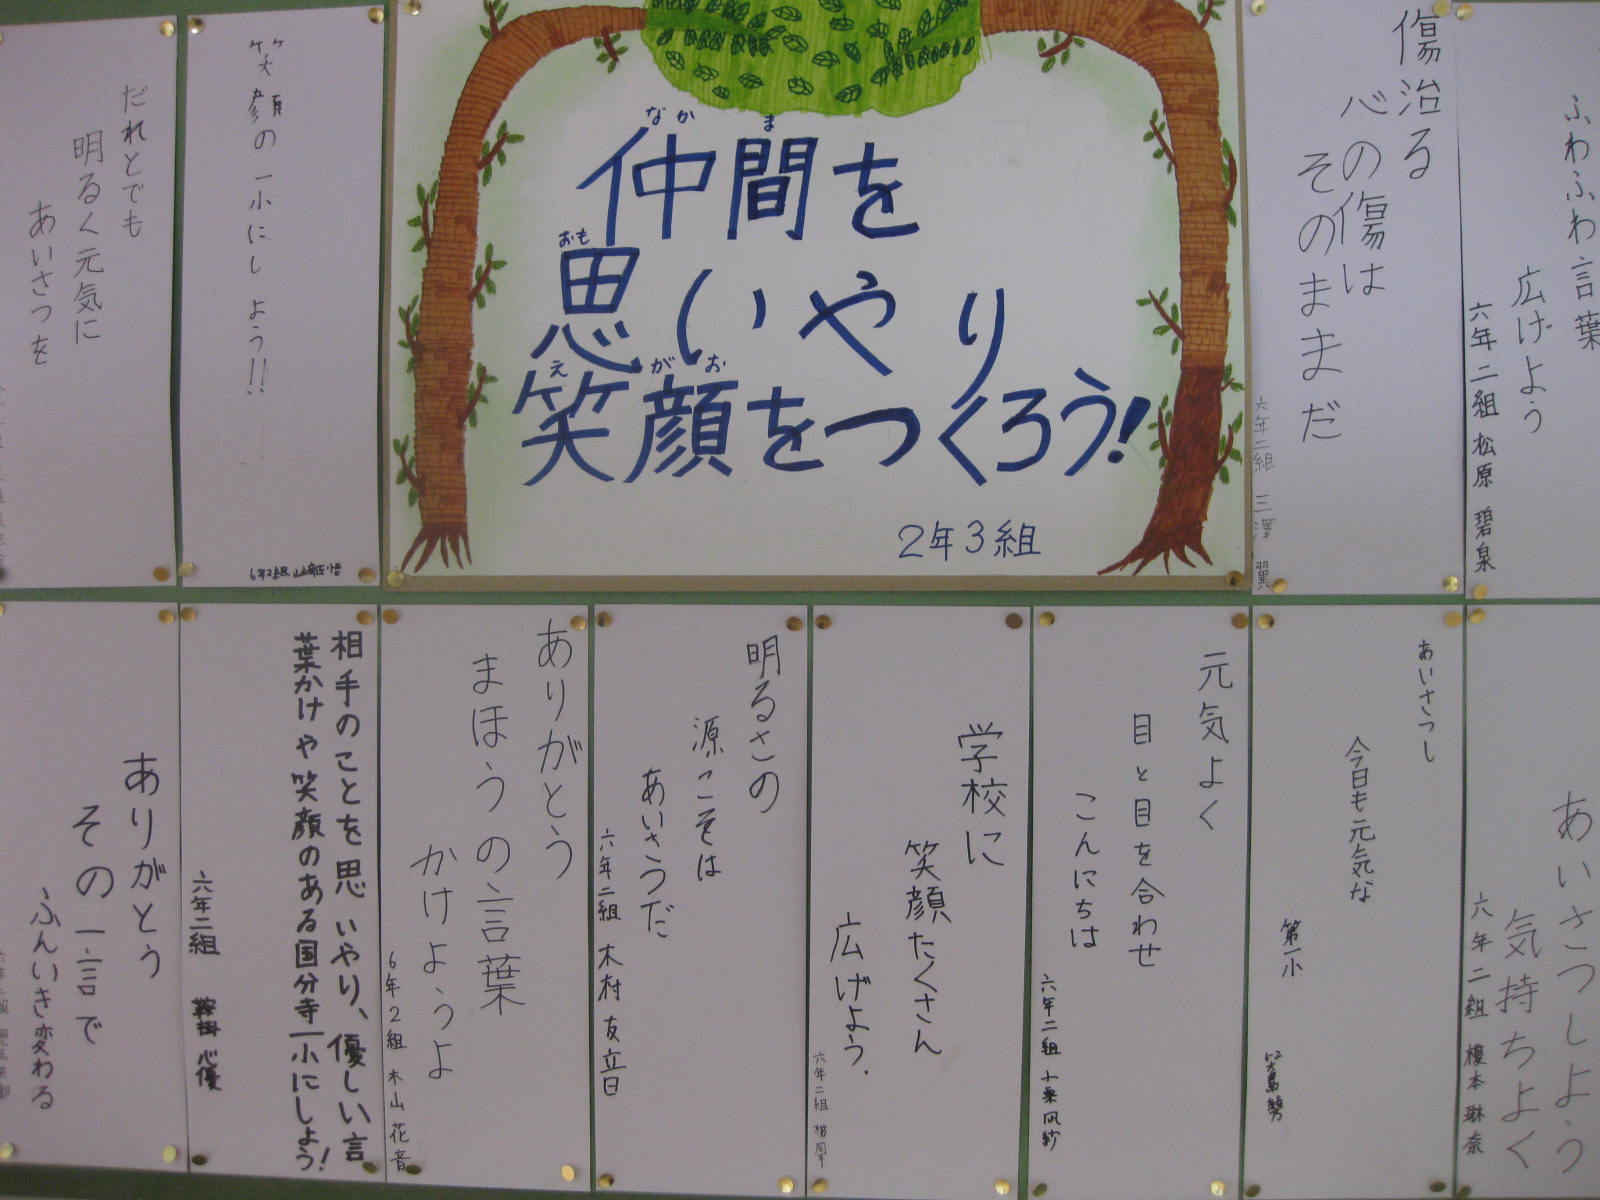 なかま
仲間を
おも
思いやり
えがお
笑顔をつくろう!
2年3組
ふわふわ言葉
広げよう
六年二組 松原 碧泉
傷治る
心の傷は
そのままだ
六年二組 三澤 翼
笑顔の一小にしよう!!
6年2組
だれとでも
明るく元気に
あいさつを
あいさつしよう
気持ちよく
六年二組 榎本 琳奈
あいさつし
今日も元気な
第一小
元気よく
目と目を合わせ
こんにちは
六年二組 小栗 凧紗
学校に
笑顔たくさん
広げよう.
六年二組
明るさの
源こそは
あいさつだ
六年二組 木村 友音
ありがとう
まほうの言葉
かけようよ
6年2組 木山 花音
相手のことを思いやり、優しい言
葉かけや笑顔のある国分寺一小にしよう!
六年二組 鞍掛 心優
ありがとう
その一言で
ふんいき変わる